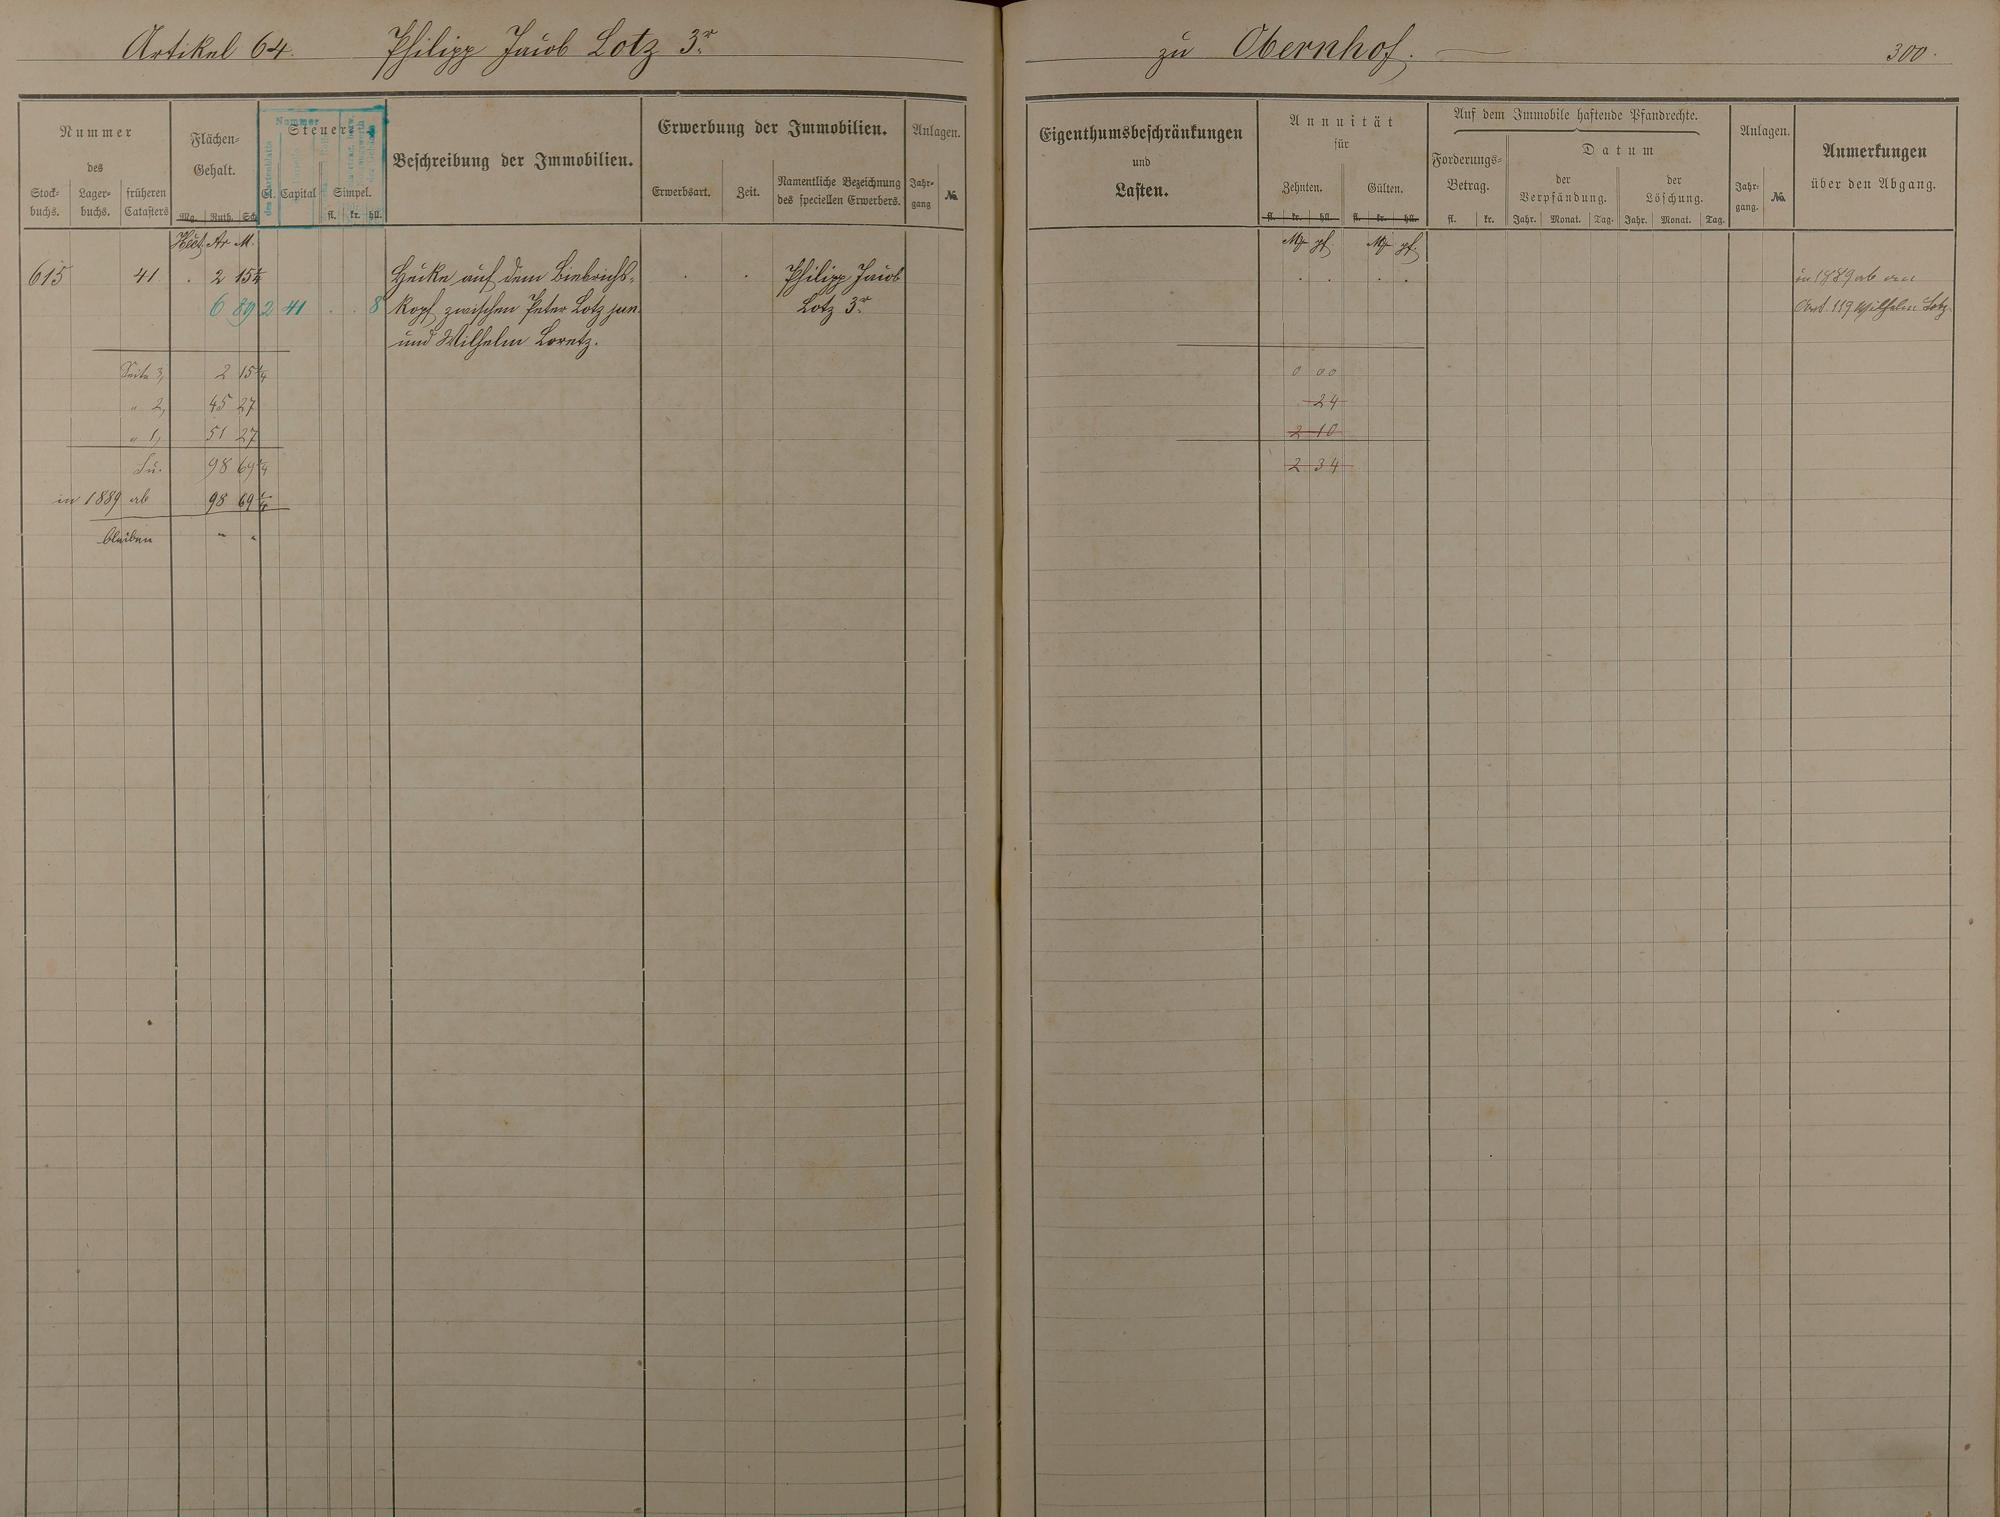 Artikel 64. Philipp Jacob Lotz 3r
zu Obernhof. 300.
Nummer
des
Stock-
buchs.
Lager-
buchs.
früheren
Catasters
Flächen-
Gehalt.
Mg. Ruth. Sch.
Steuer
Nummer
Cl. Capital Simpel.
fl. kr. hll.
Beschreibung der Immobilien.
Erwerbung der Immobilien.
Erwerbsart. Zeit.
Namentliche Bezeichnung
des speciellen Erwerbers.
Anlagen.
Jahr-
gang
No.
Eigenthumsbeschränkungen
und
Lasten.
Annuität
für
Zehnten. Gülten.
fl. kr. hll. fl. kr. hll.
Auf dem Immobile haftende Pfandrechte.
Forderungs-
Betrag.
fl. kr.
Datum
der
Verpfändung.
der
Löschung.
Jahr. Monat. Tag. Jahr. Monat. Tag.
Anlagen.
Jahr-
gang.
No.
Anmerkungen
über den Abgang.
Hect. Ar M.
M pf. M pf.
615 41 . 2 15 1/4 Hecke auf dem Biebrichs- . . Philipp Jacob . . . . in 1889 ab an
6 89 2 41 . . 8 kopf zwischen Peter Lotz jun. Lotz 3r Art. 119 Wilhelm Lotz
und Wilhelm Loretz.
Seite 3, 2 15 1/4 0 00
" 2, 45 27 24
" 1, 51 27 2 10
Su. 98 69 1/4 2 34
in 1889 ab 98 69 1/4
bleiben " "